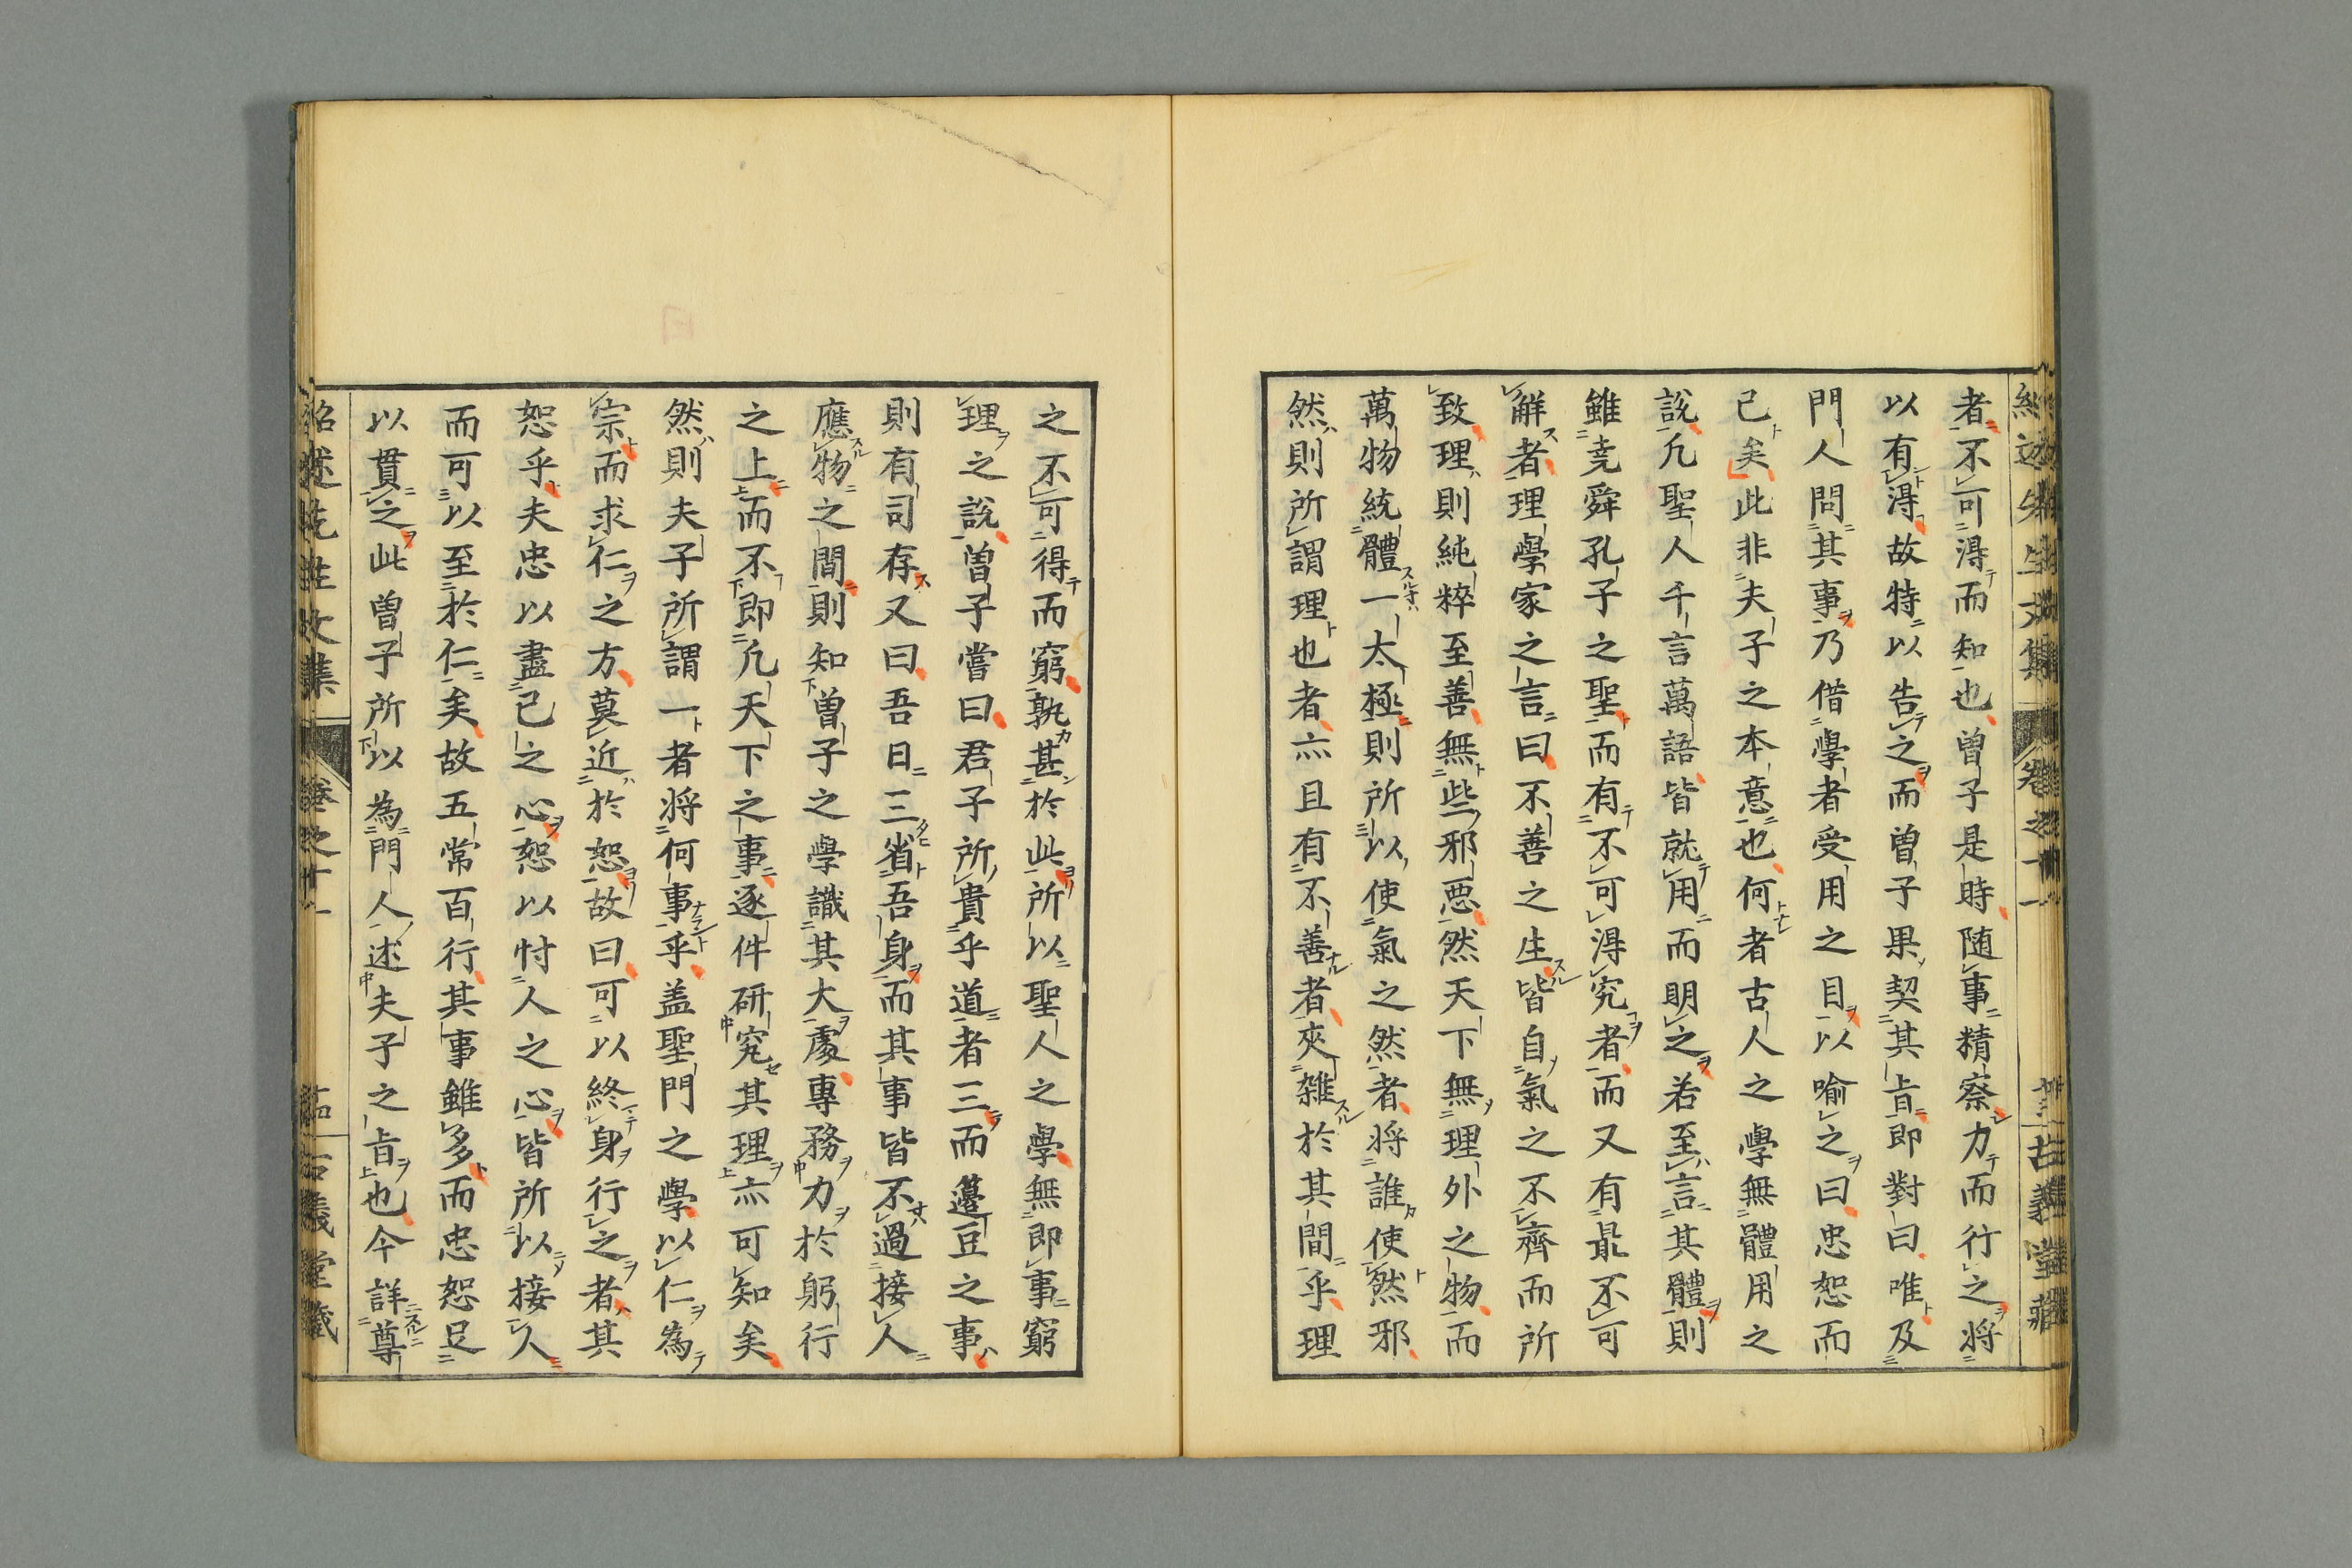 者不可淂而知也曽子是時随事精察力而行之将
以有淂故特以告之而曽子果契其㫖即對曰唯及
門人問其事乃借學者受用之目以喻之曰忠恕而
已矣此非夫子之本意也何者古人之學無體用之
說凢聖人千言萬語皆就用而明之若至言其體則
雖尭舜孔子之聖而有不可淂究者而又有最不可
解者理學家之言曰不善之生皆自氣之不齊而所
致理則純粹至善無些邪惡然天下無理外之物而
萬物統體一太極則所以使氣之然者将誰使然邪
然則所謂理也者亦且有不善者夾雑於其間乎理
之不可得而窮孰甚於此所以聖人之學無即事窮
理之說曽子嘗曰君子所貴乎道者三而籩豆之事
則有司存又曰吾日三省吾身而其事皆不過接人
應物之間則知曽子之學識其大處專務力於躬行
之上而不即凢天下之事逐件研究其理亦可知矣
然則夫子所謂一者将何事乎盖聖門之學以仁為
宗而求仁之方莫近於恕故曰可以終身行之者其
恕乎夫忠以盡己之心恕以忖人之心皆所以接人
而可以至於仁矣故五常百行其事雖多而忠恕足
以貫之此曽子所以為門人述夫子之㫖也今詳尊